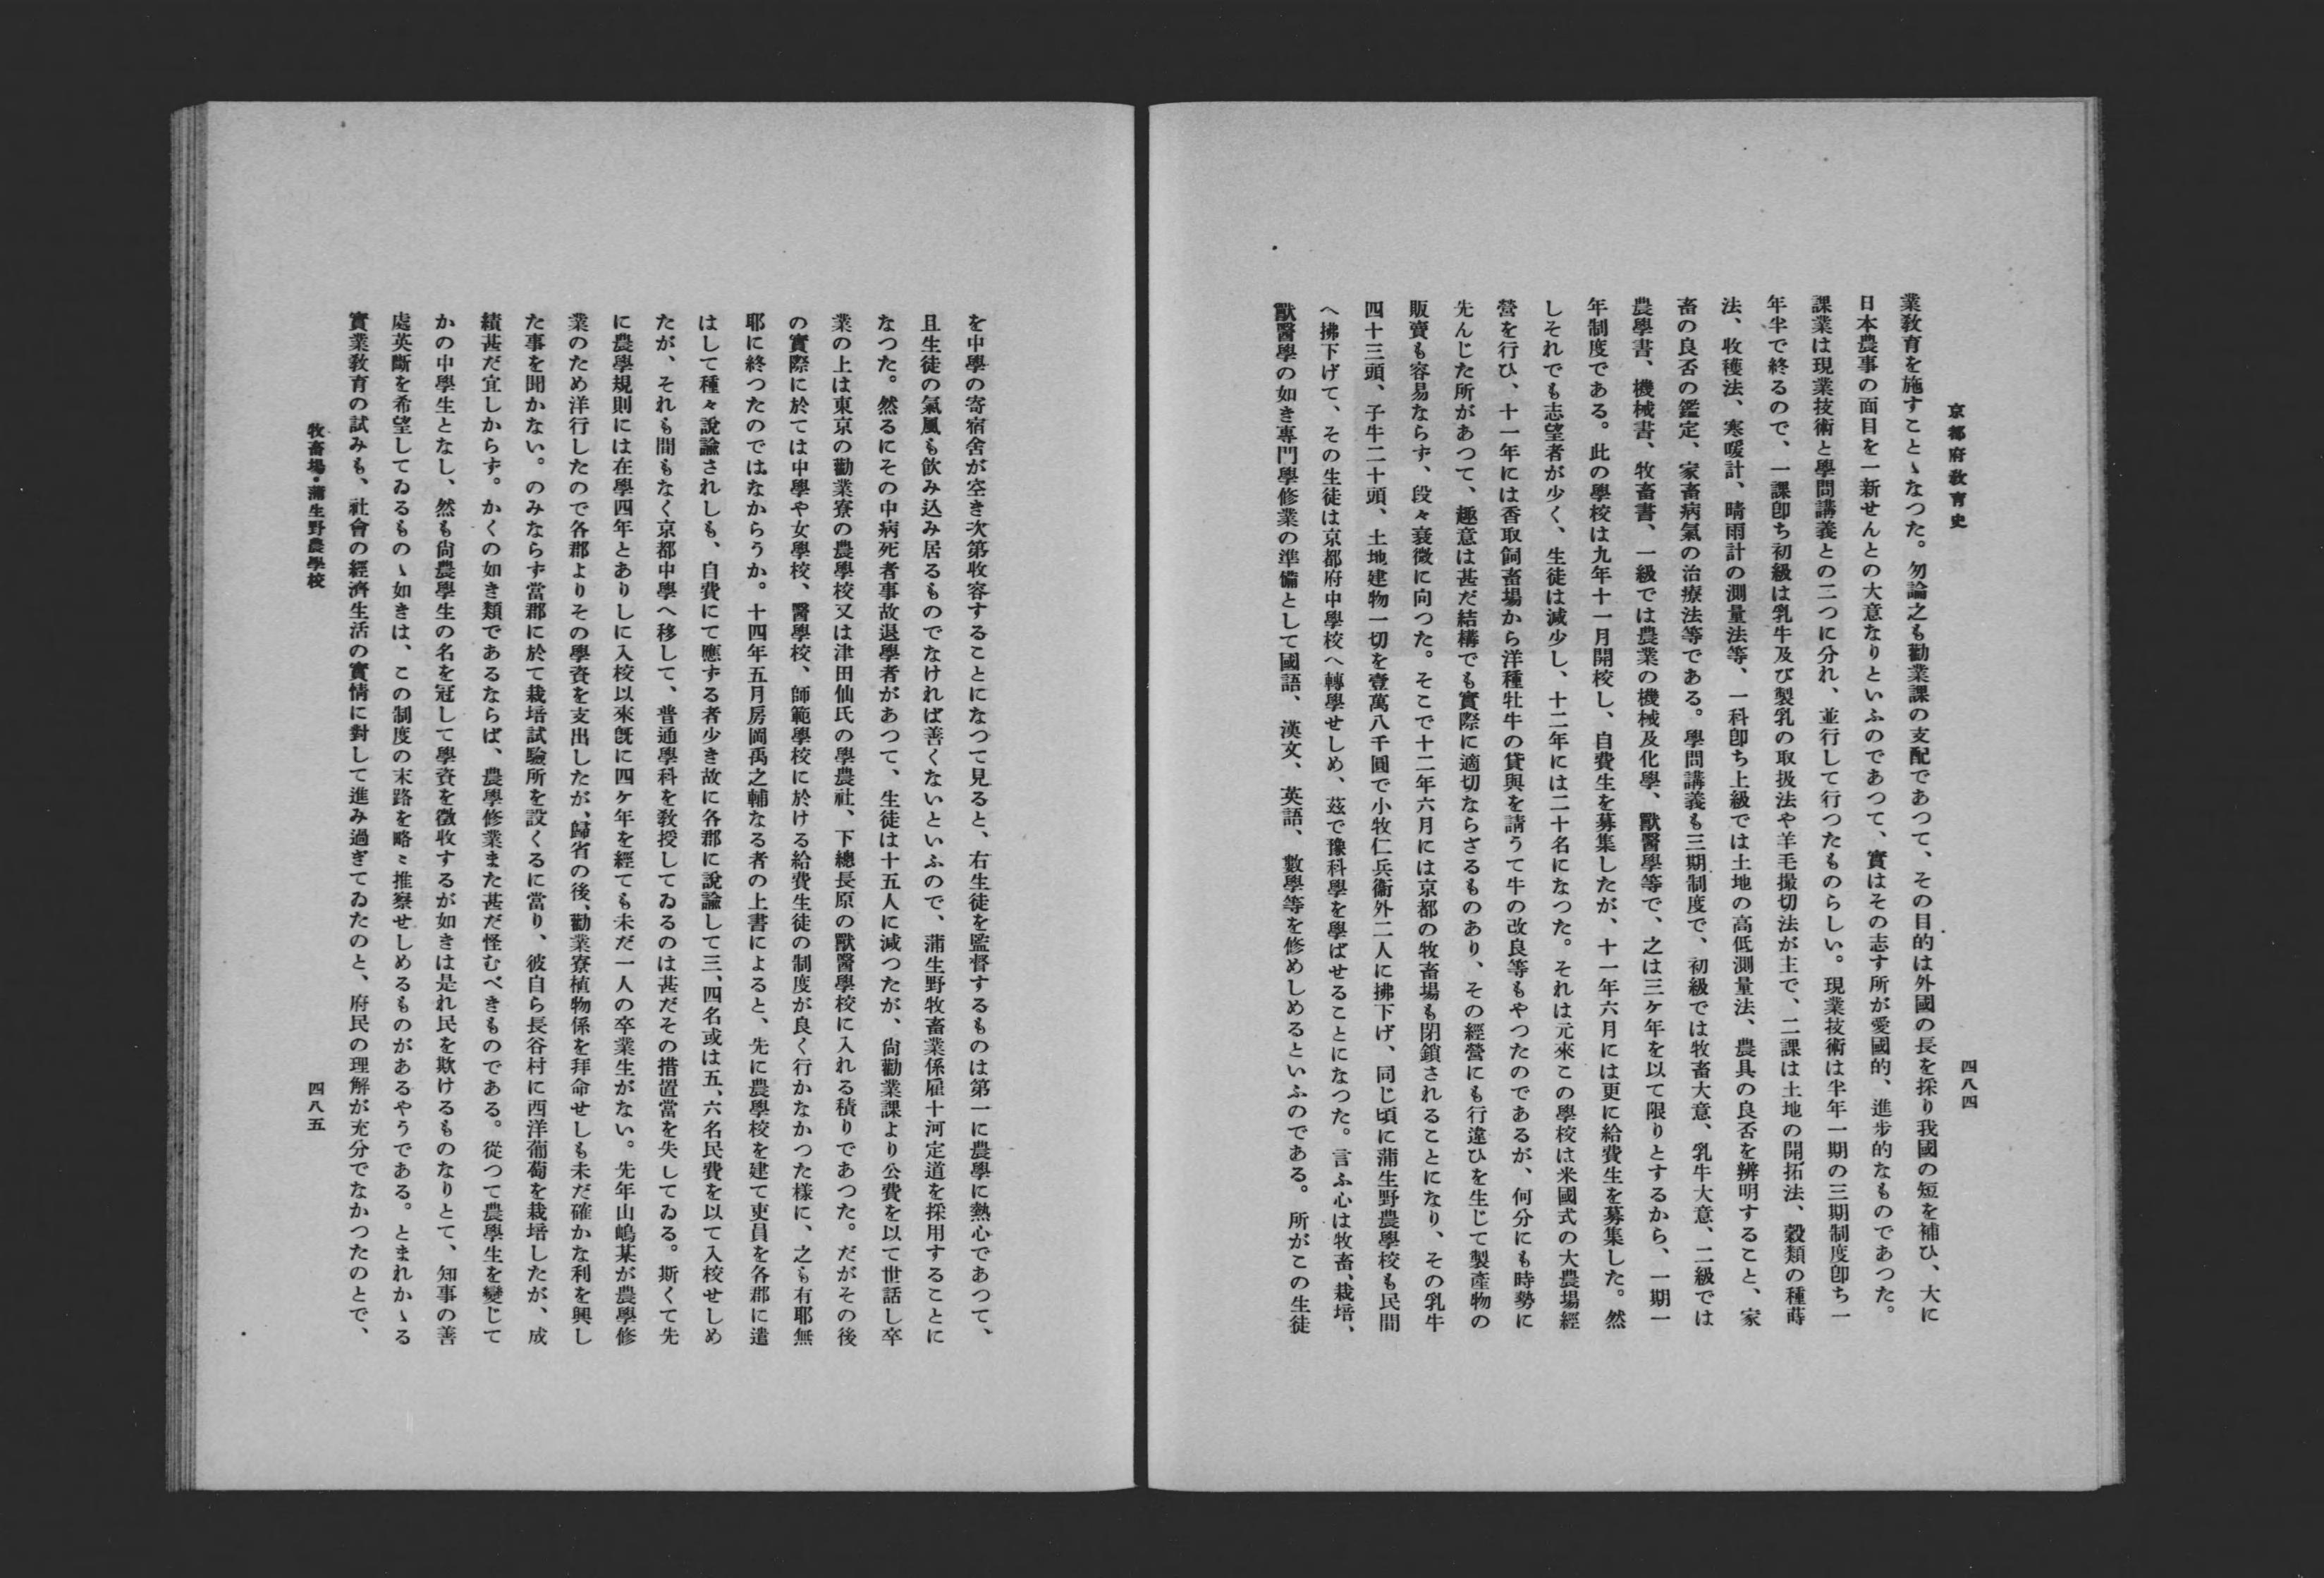 京都府教育史
四八四
業教育を施すことゝなつた。勿論之も勸業課の支配であつて、その目的は外國の長を採り我國の短を補ひ、大に
日本農事の面目を一新せんとの大意なりといふのであつて、實はその志す所が愛國的、進步的なものであつた。
課業は現業技術と學問講義との二つに分れ、並行して行つたものらしい。現業技術は半年一期の三期制度卽ち一
年半で終るので、一課卽ち初級は乳牛及び製乳の取扱法や羊毛撮切法が主で、二課は土地の開拓法、穀類の種蒔
法、收穫法、寒暖計、晴雨計の測量法等、一科卽ち上級では土地の高低測量法、農具の良否を辨明すること、家
畜の良否の鑑定、家畜病氣の治療法等である。學問講義も三期制度で、初級では牧畜大意、乳牛大意、二級では
農學書、機械書、牧畜書、一級では農業の機械及化學、獸醫學等で、之は三ケ年を以て限りとするから、一期一
年制度である。此の學校は九年十一月開校し、自費生を募集したが、十一年六月には更に給費生を募集した。然
しそれでも志望者が少く、生徒は減少し、十二年には二十名になつた。それは元來この學校は米國式の大農場經
營を行ひ、十一年には香取飼畜場から洋種牡牛の貸與を請うて牛の改良等もやつたのであるが、何分にも時勢に
先んじた所があつて、趣意は甚だ結構でも實際に適切ならざるものあり、その經營にも行違ひを生じて製產物の
販賣も容易ならず、段々衰微に向つた。そこで十二年六月には京都の牧畜場も閉鎖されることになり、その乳牛
四十三頭、子牛二十頭、土地建物一切を壹萬八千圓で小牧仁兵衞外二人に拂下げ、同じ頃に蒲生野農學校も民間
へ拂下げて、その生徒は京都府中學校へ轉學せしめ、茲で豫科學を學ばせることになつた。言ふ心は牧畜、栽培、
獸醫學の如き專門學修業の準備として國語、漢文、英語、數學等を修めしめるといふのである。所がこの生徒
を中學の寄宿舍が空き次第收容することになつて見ると、右生徒を監督するものは第一に農學に熱心であつて、
且生徒の氣風も飮み込み居るものでなければ善くないといふので、蒲生野牧畜業係雇十河定道を採用することに
なつた。然るにその中病死者事故退學者があつて、生徒は十五人に減つたが、尙勸業課より公費を以て世話し卒
業の上は東京の勸業寮の農學校又は津田仙氏の學農社、下總長原の獸醫學校に入れる積りであつた。だがその後
の實際に於ては中學や女學校、醫學校、師範學校に於ける給費生徒の制度が良く行かなかつた樣に、之も有耶無
耶に終つたのではなからうか。十四年五月房岡禹之輔なる者の上書によると、先に農學校を建て吏員を各郡に遣
はして種々說論されしも、自費にて應ずる者少き故に各郡に說論して三、四名或は五、六名民費を以て入校せしめ
たが、それも間もなく京都中學へ移して、普通學科を敎授してゐるのは甚だその措置當を失してゐる。斯くて先
に農學規則には在學四年とありしに入校以來旣に四ケ年を經ても未だ一人の卒業生がない。先年山嶋某が農學修
業のため洋行したので各郡よりその學資を支出したが、歸省の後、勸業寮植物係を拜命せしも未だ確かな利を興し
た事を聞かない。のみならず當郡に於て栽培試驗所を設くるに當り、彼自ら長谷村に西洋葡萄を栽培したが、成
績甚だ宜しからず。かくの如き類であるならば、農學修業また甚だ怪むべきものである。從つて農學生を變じて
かの中學生となし、然も尙農學生の名を冠して學資を徵收するが如きは是れ民を欺けるものなりとて、知事の善
處英斷を希望してゐるものゝ如きは、この制度の末路を略々推察せしめるものがあるやうである。とまれかゝる
實業敎育の試みも、社會の經濟生活の實情に對して進み過ぎてゐたのと、府民の理解が充分でなかつたのとで、
牧畜場・蒲生野農學校
四八五